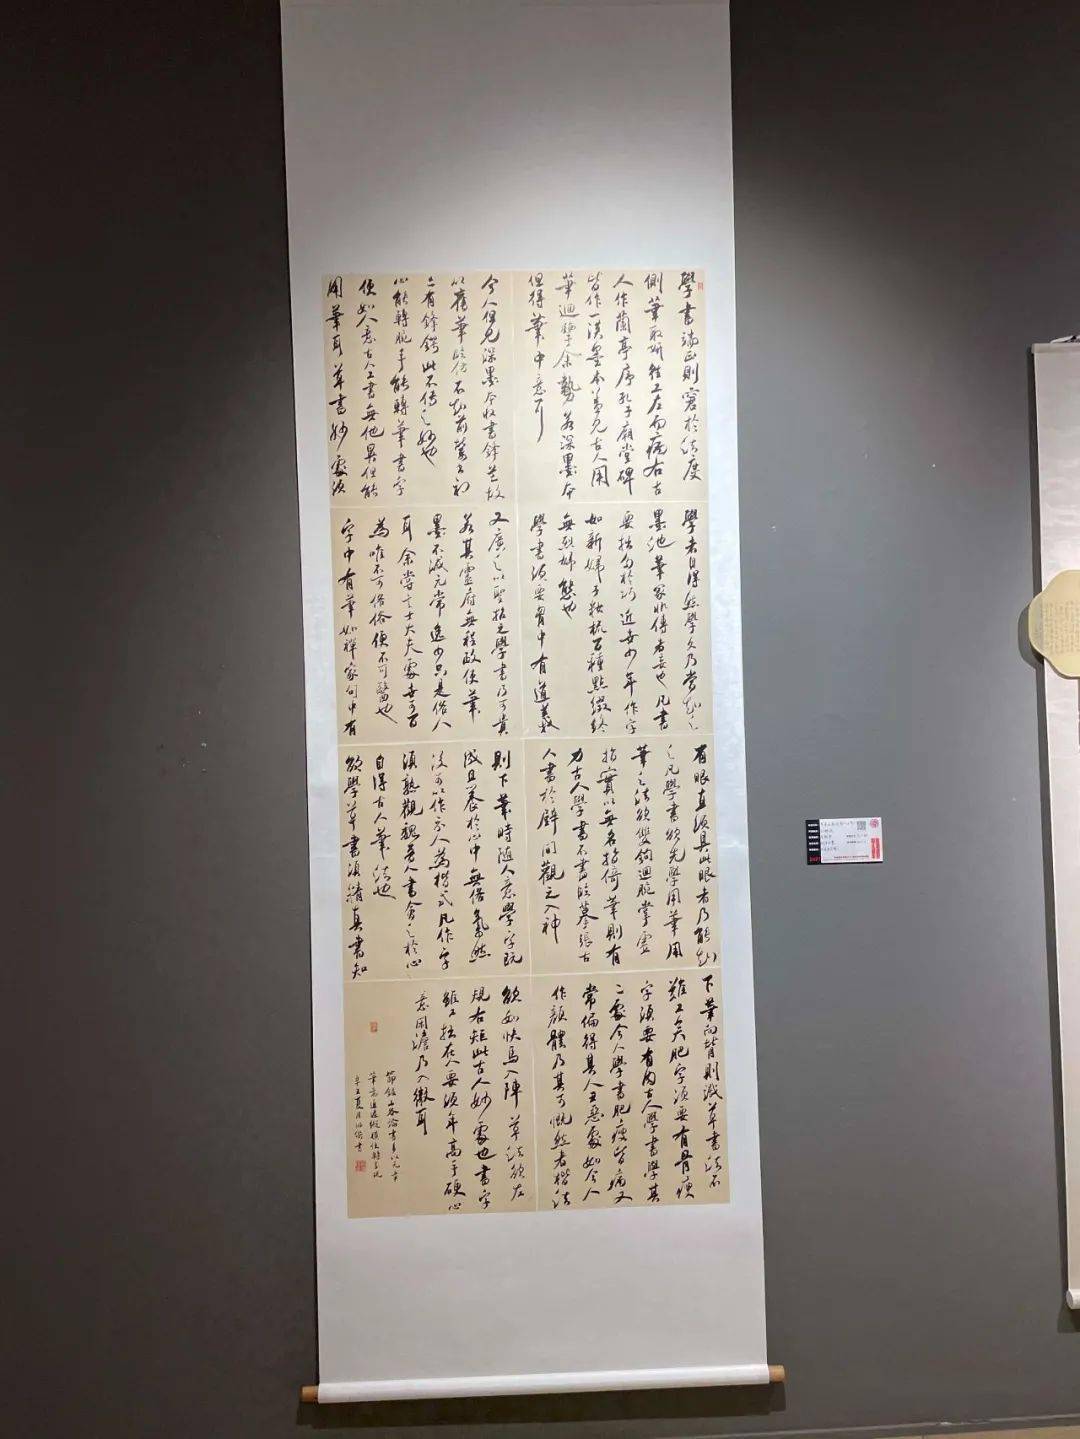 學書端正則窘於法度
側筆取妍往往工左而病右古
人作蘭亭序孔子廟堂碑
皆作一淡墨本蓋見古人用
筆迴腕餘勢若深墨本
但得筆中意耳
今人但見深墨本收書鋒芒故
以舊筆臨仿不知前輩書初
亦有鋒鍔此不傳之妙也
心能轉腕手能轉筆書字
便如人意古人工書無他異但能
用筆耳草書妙處須
學者自得然學久乃當知之
墨池筆冢非傳者妄也凡書
要拙多於巧近世少年作字
如新婦子妝梳百種點綴終
無烈婦態也
學書須要胸中有道義
又廣之以聖哲之學書乃可貴
若其靈府無程政使筆
墨不減元常逸少只是俗人
耳余嘗言士大夫處世可百
為唯不可俗俗便不可醫也
字中有筆如禪家句中有
有眼直須具此眼者乃能知
之凡學書欲先學用筆用
筆之法欲雙鉤迴腕掌虛
指實以無名指倚筆則有
力古人學書不盡臨摹張古
人書於壁間觀之入神
則下筆時隨人意學字既
成且養於心中無俗氣然
後可以作示人為楷式凡作字
須熟觀魏晉人書會之於心
自得古人筆法也
欲學草書須精真書知
下筆向背則識草書法不
難工矣肥字須要有骨瘦
字須要有肉古人學書學其
二處今人學書肥瘦皆病又
常偏得其人醜惡處如今人
作顏體乃其可慨然者楷法
欲如快馬入陣草法欲左
規右矩此古人妙處也書字
雖工拙在人要須年高手硬心
意閒澹乃入微耳
節錄山谷論書
辛丑夏月